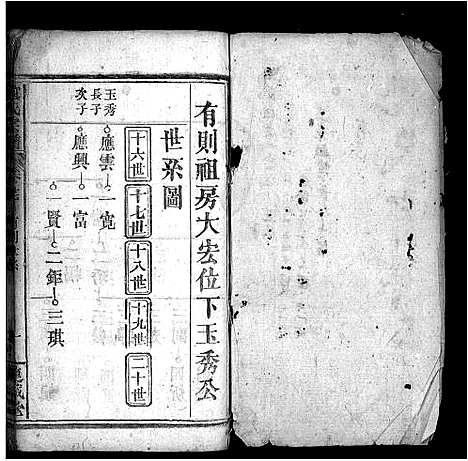 有則祖房大宏位下玉秀公
世系圖
十六世 十七世 十八世 十九世 二十世
玉秀
長子 應雲 一寬
次子 應興 一富
一賢 二鉅 三琪